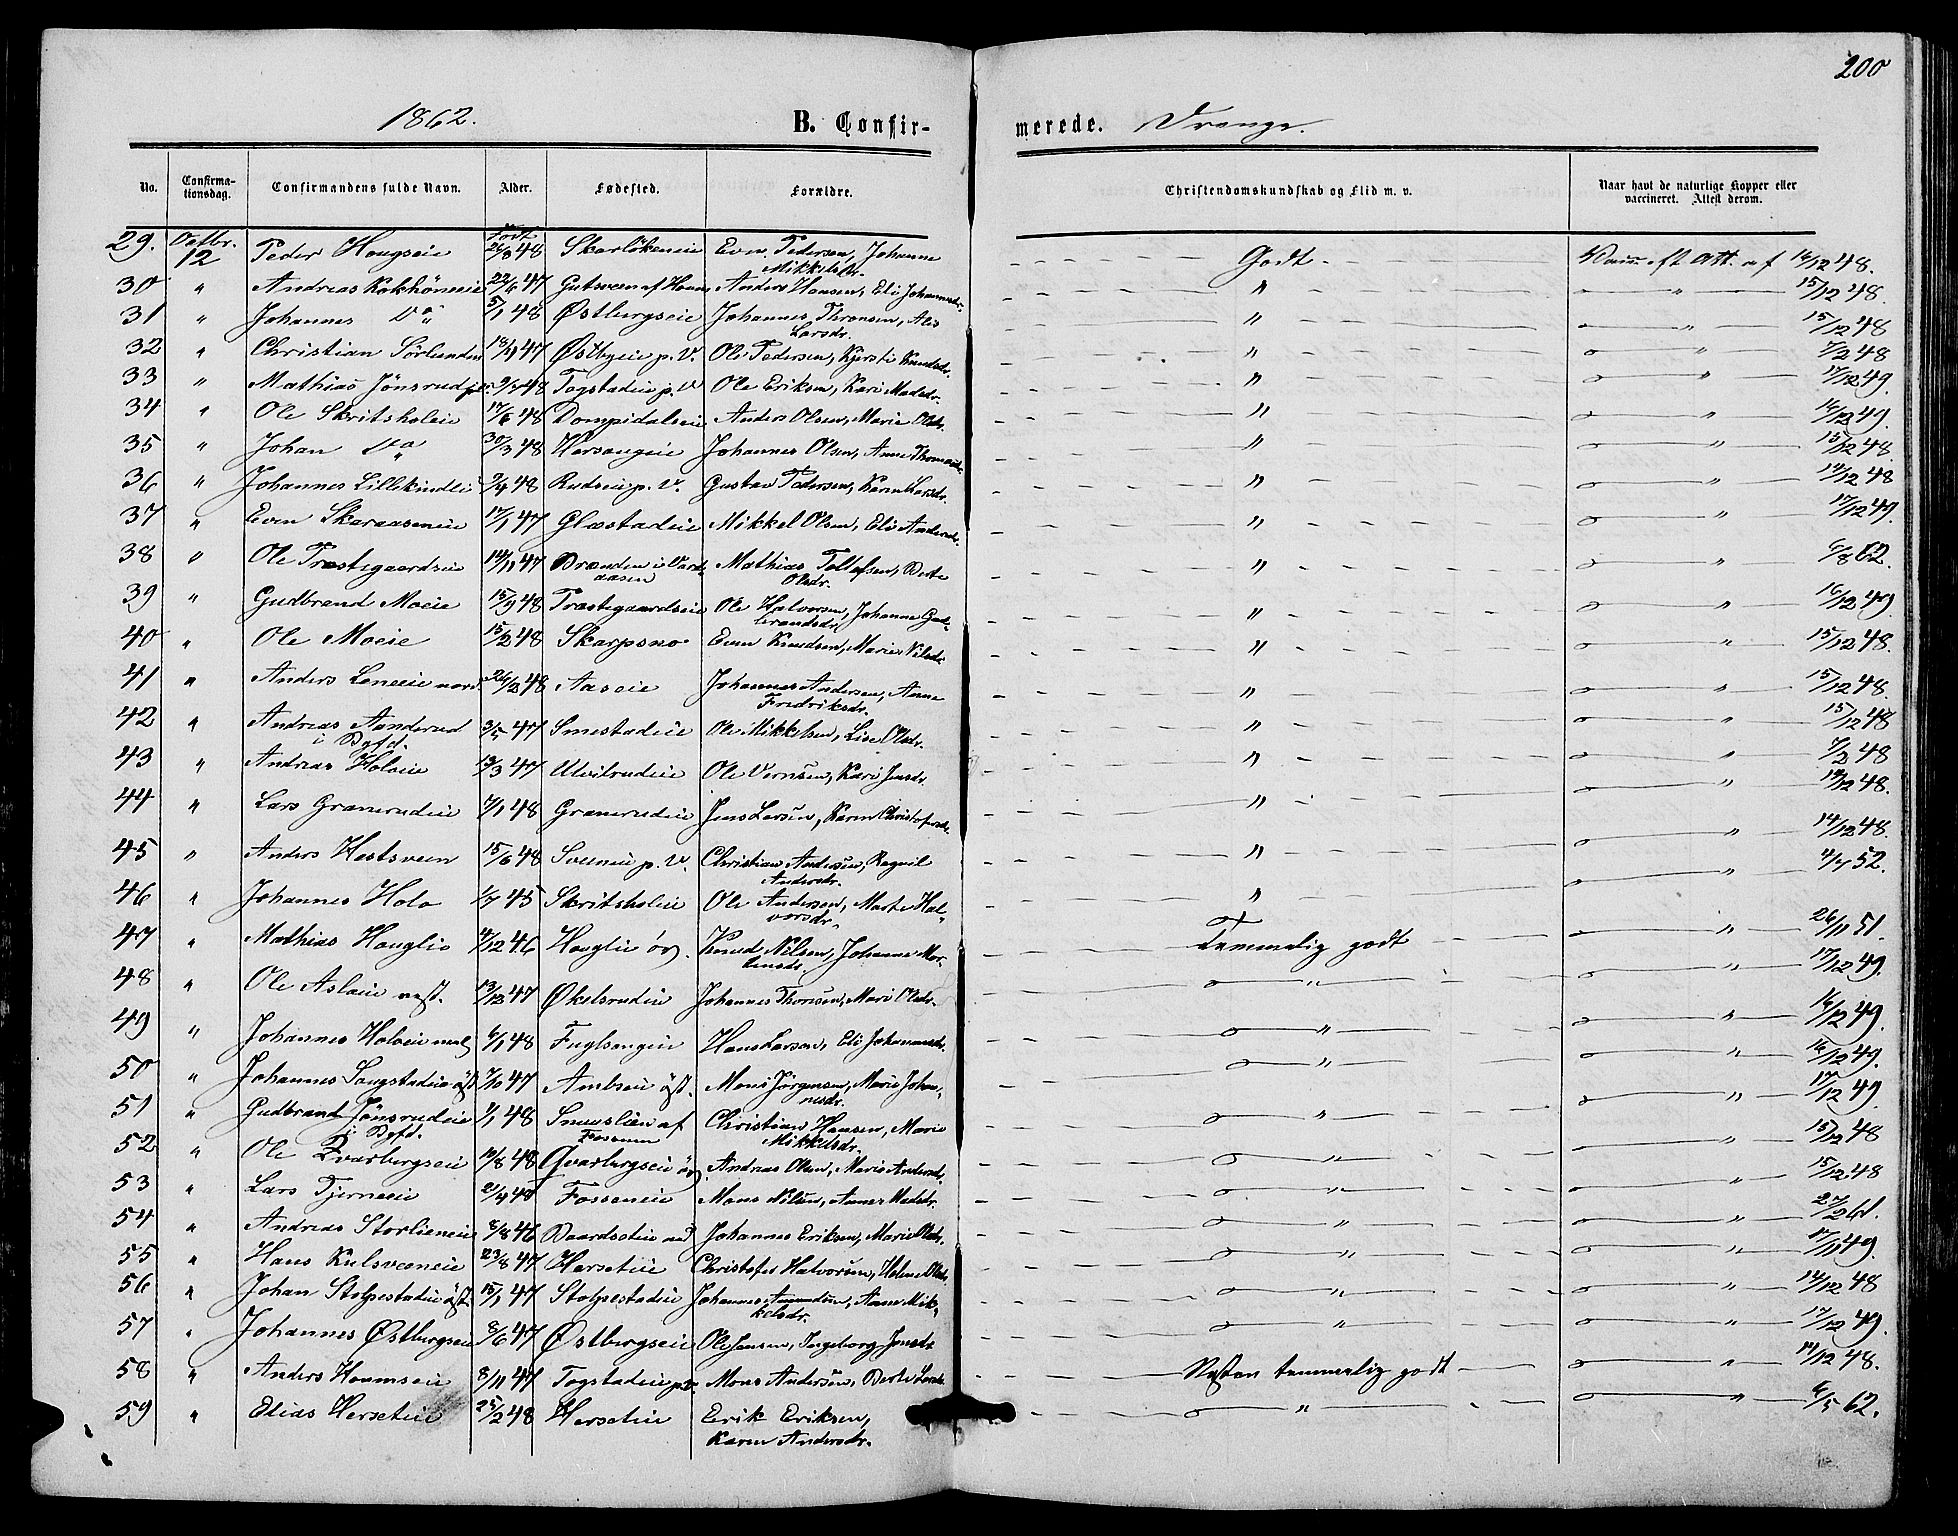 200
1862. B. Confir- merede. Drenge.
No. Confirma-tionsdag. Confirmandens fulde Navn. Alder. Fødested. Forældre. Christendomskundskab og Flid m. v. Naar havt de naturlige Kopper eller vaccineret. Attest derom.
29. Octbr. 12 Peder Hougseie Født 26/8 48 Skarlökeneie Even Pedersen, Johanne Mikkelsdr. Godt. Vacc. eft Att. af 16/12 48.
30 " Andreas Kokhöneeie 22/6 47 Gutsveen af Houm Anders Hansen, Eli Johannesdr. " " 15/12 48.
31 " Johannes Do 5/1 48 Østbergseie Johannes Thronsen, Alis Larsdr. " " 15/12 48
32 " Christian Sörlunden 18/11 47 Østbyeie p. V. Ole Pedersen, Kjersti Knudsdr. " " 7/2 48
33 " Mathias Jönsrud 9/5 48 Togstadeie p. V Ole Eriksen, Kari Madsdr. " " 17/12 49.
34 " Ole Skritsholeie 17/6 48 Dompidalseie Anders Olsen, Marie Olsdr. " " 16/12 49.
35 " Johan Do 30/3 48 Horsangeie Johannes Olsen, Anne Thomasdr. " " 15/12 48.
36 " Johannes Lillekindli 9/4 48 Rudseie p. V. Gustav Pedersen, Karen Larsdr. " " 14/12 48
37 " Even Skaraaseneie 17/1 47 Glæstadeie Mikkel Olsen, Eli Andersdr. " " 17/12 49.
38 " Ole Træetegaardseie 14/11 47 Brænden i Vardaasen Mathias Tollefsen, Berte Olsdr. " " 6/8 62.
39 " Gudbrand Moeie 15/9 48 Træetegaardseie Ole Halvorsen, Johanne Gudbrandsdr. " " 16/12 49.
40 " Ole Moeie 15/2 48 Skarpsno Even Knudsen, Marie Nilsdr " " 15/12 48.
41 " Anders Leneeie nord. 26/2 48 Aaseie Johannes Andersen, Anne Fredriksdr. " " 15/12 48.
42 " Andreas Aanderud i Bgfd. 3/5 47 Smestadeie Ole Mikkelsen, Lise Olsdr. " " 15/12 48
43 " Andreas Holoeie 13/3 47 Ulvilrudeie Ole Vernsen, Kari Jensdr " " 7/2 48
44 " Lars Granerudeie 7/1 48 Granerudeie Jens Larsen, Karen Christofersdr. " " 14/12 48.
45 " Anders Hestsveen 15/6 48 Sveeneie p. V. Christian Andersen, Ragnil Andersdr. " " 14/12 48.
46 " Johannes Holo 1/7 45 Skritsholeie Ole Andersen, Marte Halvorsdr. " " 4/7 52.
47 " Mathias Houglie 4/12 46 Houglie öv. Knud Nilsen, Johanne Mortensdr. Temmelig godt " 26/11 51.
48 " Ole Asloeie vest. 13/12 47 Økelsrudeie Johannes Thoresen, Mari Olsdr. " " 17/12 49.
49 " Johannes Holoeie 6/1 48 Fuglsangeie Hans Larsen, Eli Johannesdr. " " 16/12 49.
50 " Johannes Sougstadeie öst 7/10 47 Ambseie öst. Mons Jörgensen, Marie Johannesdr. " " 16/12 49.
51 " Gudbrand Jönsrudeie i Bgfd. 7/1 48 Smuslien af Fossumm Christian Hansen, Marie Mikkelsdr. " " 17/12 49
52 " Ole Qvarbergseie 19/8 48 Qvarbergseie öv. Andreas Olsen, Marie Andersdr. " " 15/12 48
53 " Lars Tjerneeie 21/4 48 Fosseneie Mons Nilsen, Anne Madsdr. " " 15/12 48
54 " Andreas Storlieneie 8/8 46 Baardseteie ned Johannes Eriksen, Marie Olsdr. " " 27/2 61.
55 " Hans Kulsveeneie 23/8 47 Herseteie Christofer Halvorsen, Helene Olsdr. " " 17/11 49.
56 " Johan Stolpestadeie öst. 15/1 47 Stolpestadeie Johannes Amundsen, Anne Mikkelsdr. " " 14/12 48
57 " Johannes Østbergseie 8/6 47 Østbergseie Ole Jensen, Ingeborg Jensdr " " 17/12 49.
58 " Anders Houmseie 8/11 47 Togstadeie p.V. Mons Andersen, Berte Larsdr. Næsten temmelig godt " 14/12 48.
59 " Elias Herseteie 25/2 48 Herseteie Erik Eriksen, Karen Andersdr. " " 6/5 62.